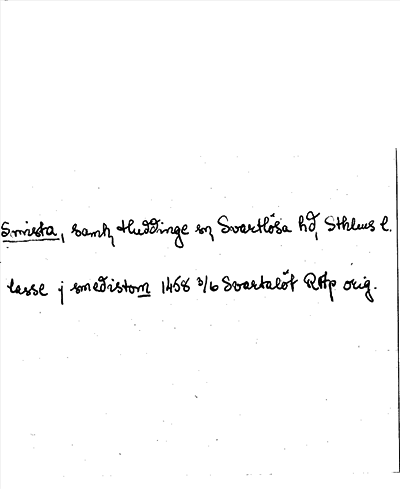 Smista, samh Huddinge sn Svartlösa hd, Sthlms l.
lasse j smedistom 1458 3/6 Svartalöt RAp orig.